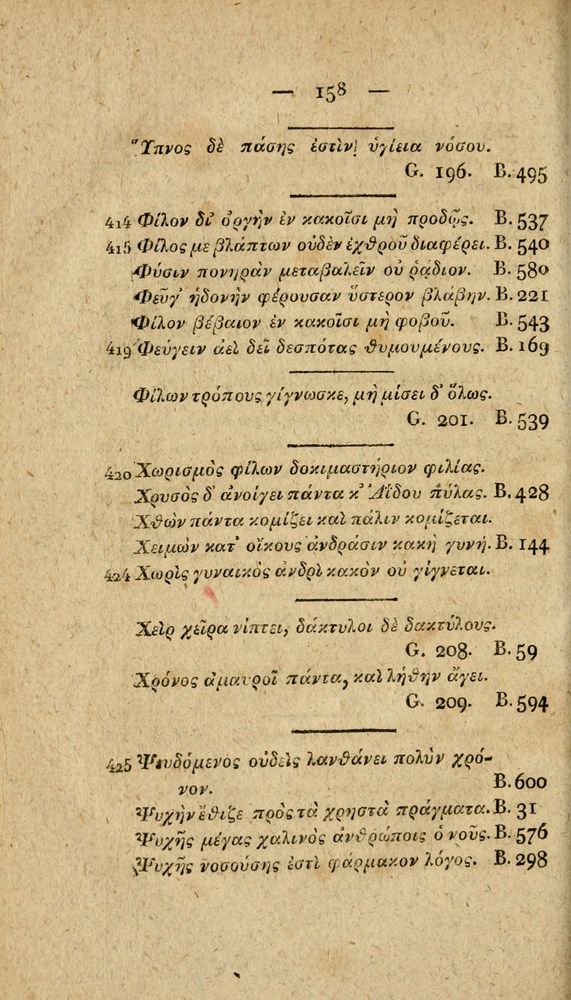 — 158 —
Ὕπνος δὲ πάσης ἐστὶν ὑγίεια νόσου.
G. 196. B. 495
414 Φίλον δι' ὀργὴν ἐν κακοῖσι μὴ προδῷς. B. 537
415 Φίλος με βλάπτων οὐδὲν ἐχθροῦ διαφέρει. B. 540
Φύσιν πονηρὰν μεταβαλεῖν οὐ ῥᾴδιον. B. 580
Φεῦγ' ἡδονὴν φέρουσαν ὕστερον βλάβην. B. 221
Φίλον βέβαιον ἐν κακοῖσι μὴ φοβοῦ. B. 543
419 Φεύγειν ἀεὶ δεῖ δεσπότας θυμουμένους. B. 169
Φίλων τρόπους γίγνωσκε, μὴ μίσει δ' ὅλως.
G. 201. B. 539
420 Χωρισμὸς φίλων δοκιμαστήριον φιλίας.
Χρυσὸς δ' ἀνοίγει πάντα κ' Ἀΐδου πύλας. B. 428
Χθὼν πάντα κομίζει καὶ πάλιν κομίζεται.
Χειμὼν κατ' οἴκους ἀνδράσιν κακὴ γυνή. B. 144
424 Χωρὶς γυναικὸς ἀνδρὶ κακὸν οὐ γίγνεται.
Χεὶρ χεῖρα νίπτει, δάκτυλοι δὲ δακτύλους.
G. 208. B. 59
Χρόνος ἀμαυροῖ πάντα, καὶ λήθην ἄγει.
G. 209. B. 594
425 Ψευδόμενος οὐδεὶς λανθάνει πολὺν χρό-
νον. B. 600
Ψυχὴν ἔθιζε πρὸς τὰ χρηστὰ πράγματα. B. 31
Ψυχῆς μέγας χαλινὸς ἀνθρώποις ὁ νοῦς. B. 576
Ψυχῆς νοσούσης ἐστὶ φάρμακον λόγος. B. 298